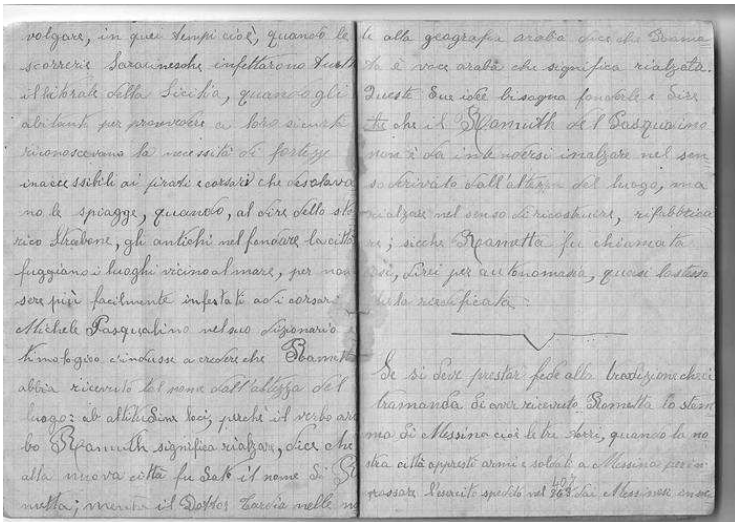 volgare, in quei tempi cioè, quando le
scorrerie Saracinesche infettarono tutto
il litorale della Sicilia, quando gli
abitanti per provvedere a loro sicurtà
riconoscevano la necessità di fortezze
inaccessibili ai pirati e corsari che desolava
no le spiagge, quando, al dire dello sto
rico Strabone, gli antichi nel fondare le città
fuggiano i luoghi vicino al mare, per non
sere più facilmente infestati dai corsari.
Michele Pasqualino nel suo dizionario e
timologico c'indusse a credere che Rametta
abbia ricevuto tal nome dall'altezza del
luogo: ab altitudine loci; perchè il verbo ara
bo Ramuth significa rialzar, dice che
alla nuova città fu dato il nome di R
metta; mentre il Dottor Cardia nelle no
te alla geografia araba dice che Rama
ta è voce araba che significa rialzata.
Queste due idee bisogna fonderle e dire
che il Ramuth del Pasqualino
non è da intendersi inalzare nel sen
so derivato dall'altezza del luogo, ma
rialzare nel senso di ricostruire, rifabbrica
re; sicchè Rametta fu chiamata
così, direi per autonomasia, quasi lo stesso
che la riedificata:
Se si deve prestar fede alla tradizione che ci
tramanda di aver ricevuto Rometta lo stem
ma di Messina cioè le tre torri, quando la no
stra città apprestò armi e soldati a Messina per in
rassare l'esercito spedito nel 407 dai Messinesi